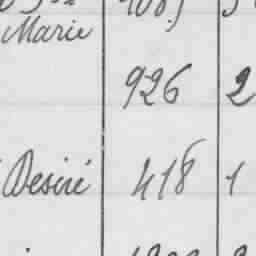 Marie
926 2
Desiré 418 1